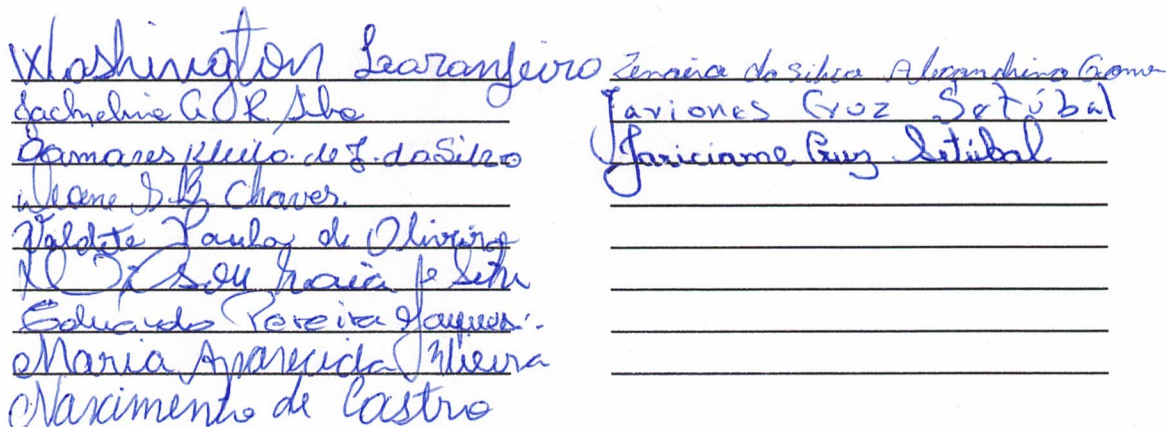 Washington Laranjeiro
Jackeline A. O. R. Silva
Damares Kleila de J. da Silva
S. B. Chaves.
Valdete Paula de Oliveira
Maia
Eduardo Pereira Jaques.
Maria Aparecida Vieira
Nascimento de Castro
Zenaira da Silva Alexandrina Gome
Jariones Cruz Setúbal
Jariciame Cruz Setúbal